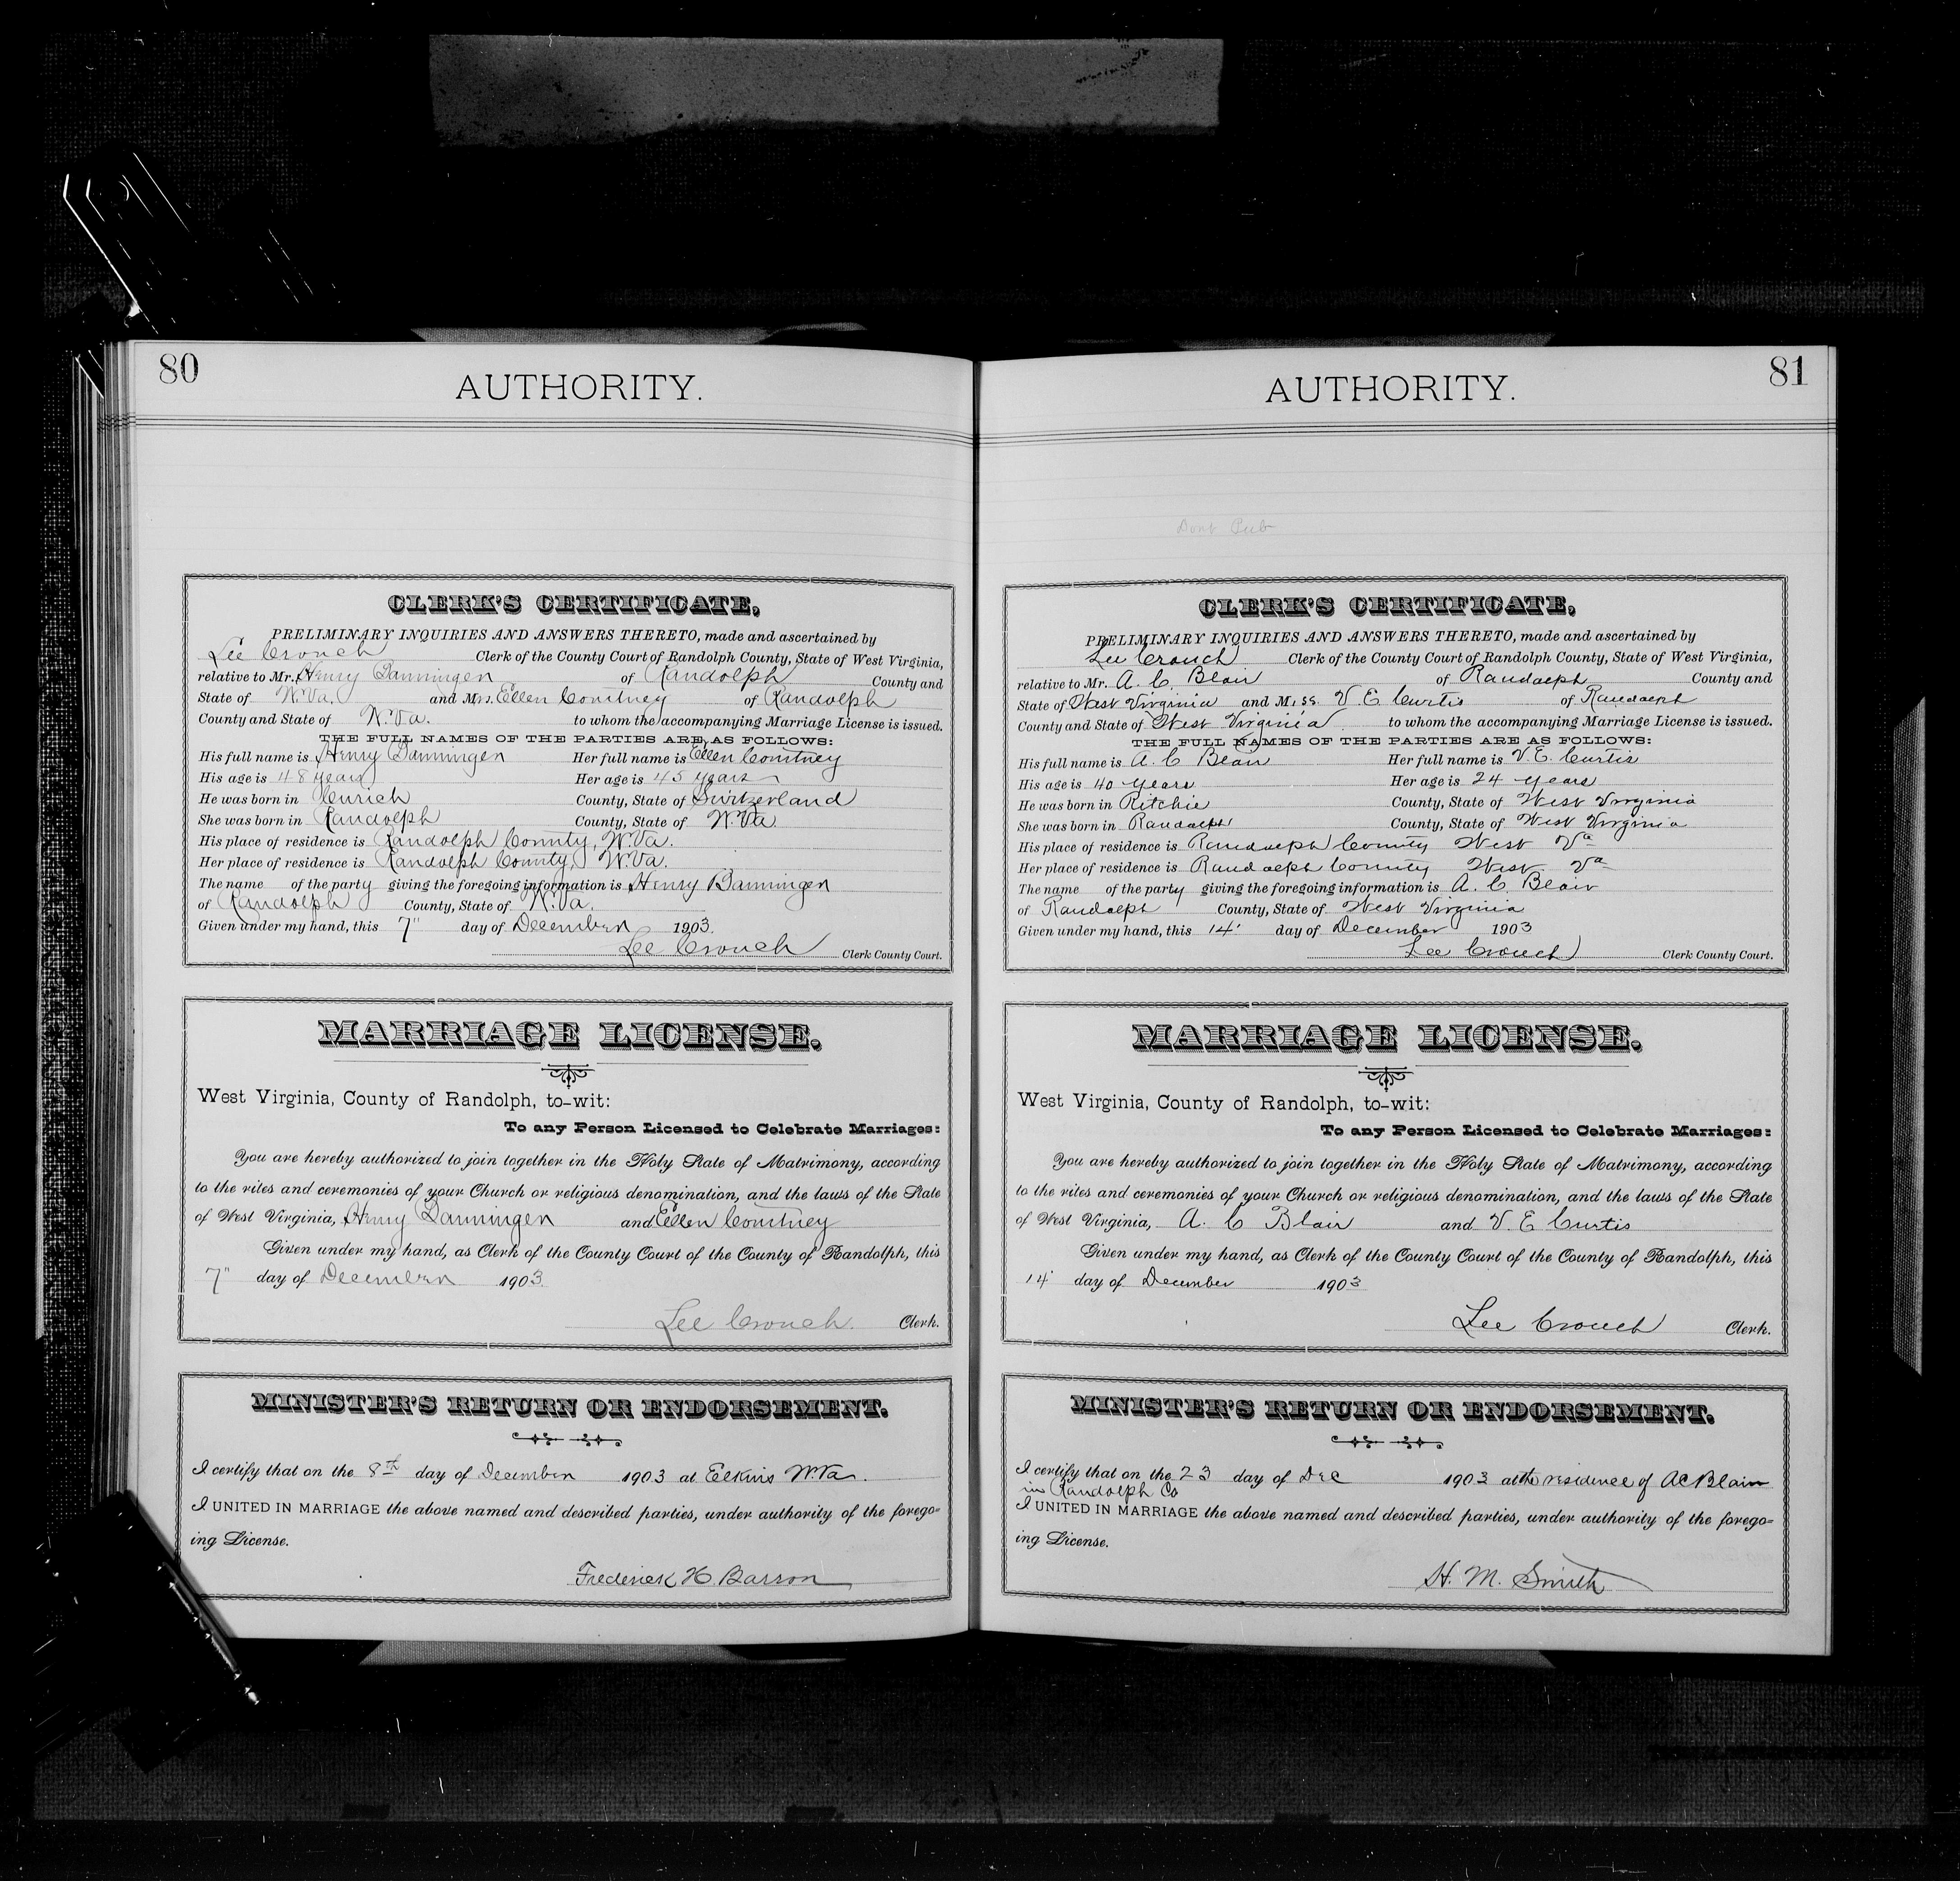 80
AUTHORITY.
CLERK'S CERTIFICATE,
PRELIMINARY INQUIRIES AND ANSWERS THERETO, made and ascertained by
Lee Crouch Clerk of the County Court of Randolph County, State of West Virginia,
relative to Mr. Henry Banningen of Randolph County and
State of W.Va. and Mrs. Ellen Courtney of Randolph
County and State of W.Va. to whom the accompanying Marriage License is issued.
THE FULL NAMES OF THE PARTIES ARE AS FOLLOWS:
His full name is Henry Banningen Her full name is Ellen Courtney
His age is 48 years Her age is 45 years
He was born in Zurich County, State of Switzerland
She was born in Randolph County, State of W.Va.
His place of residence is Randolph County, W.Va.
Her place of residence is Randolph County, W.Va.
The name of the party giving the foregoing information is Henry Banningen
of Randolph County, State of W.Va.
Given under my hand, this 7" day of December 1903.
Lee Crouch Clerk County Court.
MARRIAGE LICENSE.
West Virginia, County of Randolph, to-wit:
To any Person Licensed to Celebrate Marriages:
You are hereby authorized to join together in the Holy State of Matrimony, according
to the rites and ceremonies of your Church or religious denomination, and the laws of the State
of West Virginia, Henry Banningen and Ellen Courtney
Given under my hand, as Clerk of the County Court of the County of Randolph, this
7" day of December 1903.
Lee Crouch. Clerk.
MINISTER'S RETURN OR ENDORSEMENT.
I certify that on the 8th day of December 1903 at Elkins W.Va.
I UNITED IN MARRIAGE the above named and described parties, under authority of the forego=
ing License.
Frederick H. Barron
81
AUTHORITY.
Dont Pub
CLERK'S CERTIFICATE,
PRELIMINARY INQUIRIES AND ANSWERS THERETO, made and ascertained by
Lee Crouch Clerk of the County Court of Randolph County, State of West Virginia,
relative to Mr. A. C. Blair of Randolph County and
State of West Virginia and Miss. V E Curtis of Randolph
County and State of West Virginia to whom the accompanying Marriage License is issued.
THE FULL NAMES OF THE PARTIES ARE AS FOLLOWS:
His full name is A. C Blair Her full name is V. E. Curtis
His age is 40 years Her age is 24 years
He was born in Ritchie County, State of West Virginia
She was born in Randolph County, State of West Virginia
His place of residence is Randolph County West Va
Her place of residence is Randolph County West Va
The name of the party giving the foregoing information is A. C. Blair
of Randolph County, State of West Virginia
Given under my hand, this 14' day of December 1903
Lee Crouch Clerk County Court.
MARRIAGE LICENSE.
West Virginia, County of Randolph, to-wit:
To any Person Licensed to Celebrate Marriages:
You are hereby authorized to join together in the Holy State of Matrimony, according
to the rites and ceremonies of your Church or religious denomination, and the laws of the State
of West Virginia, A. C Blair and V. E Curtis
Given under my hand, as Clerk of the County Court of the County of Randolph, this
14' day of December 1903
Lee Crouch Clerk.
MINISTER'S RETURN OR ENDORSEMENT.
I certify that on the 23 day of Dec 1903 at the residence of AC Blair
in Randolph Co
I UNITED IN MARRIAGE the above named and described parties, under authority of the forego=
ing License.
H. M. Smith